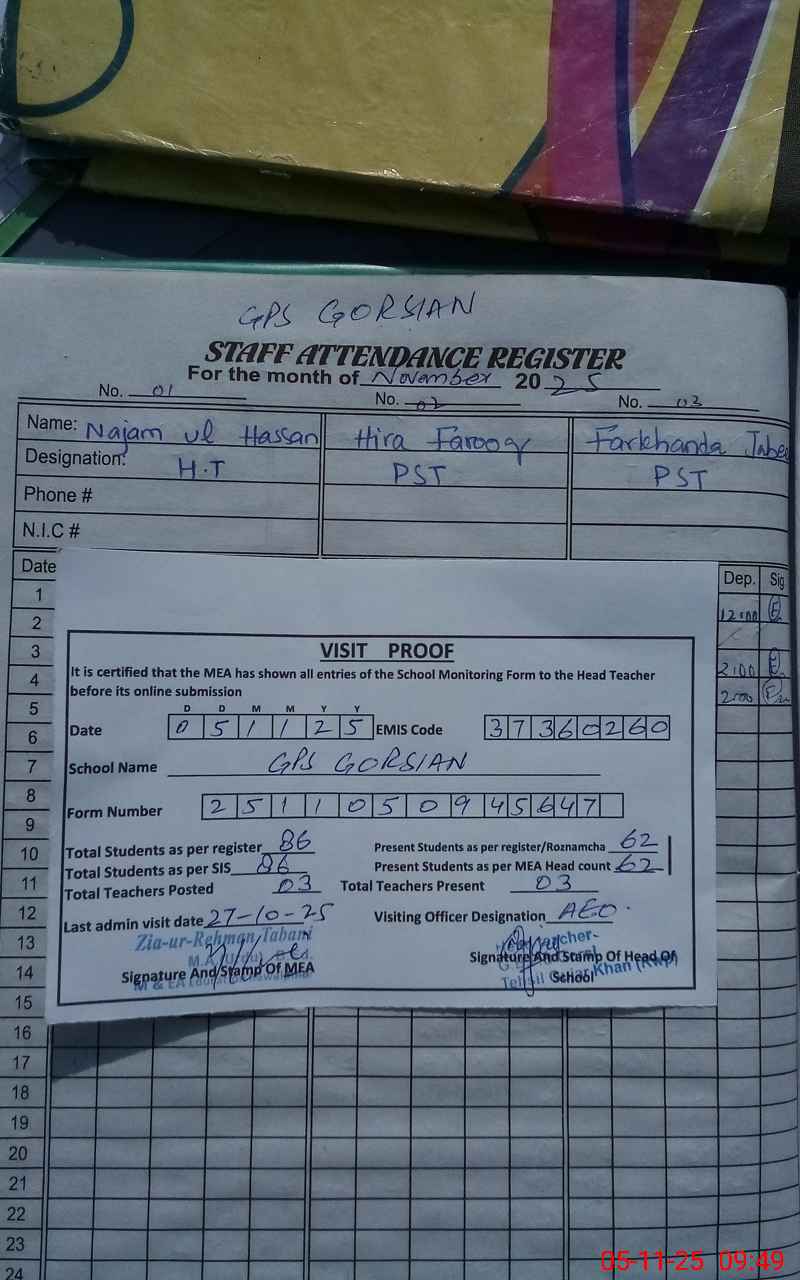 GPS GORSIAN
STAFF ATTENDANCE REGISTER
For the month of November 2025
No. 01 No. 02 No. 03
Name: Najam ul Hassan Hira Farooq Farkhanda Jabe
Designation: H.T PST PST
Phone #
N.I.C #
Date Dep. Sig
1
2 12:00
3
4 2:00
5 2:00
6
7
8
9
10
11
12
13
14
15
16
17
18
19
20
21
22
23
24
VISIT PROOF
It is certified that the MEA has shown all entries of the School Monitoring Form to the Head Teacher
before its online submission
D D M M Y Y
Date 0 5 1 1 2 5 EMIS Code 3 7 3 6 0 2 6 0
School Name GPS GORSIAN
Form Number 2 5 1 1 0 5 0 9 4 5 6 4 7
Total Students as per register 86 Present Students as per register/Roznamcha 62
Total Students as per SIS 86 Present Students as per MEA Head count 62
Total Teachers Posted 03 Total Teachers Present 03
Last admin visit date 27-10-25 Visiting Officer Designation AEO.
Zia-ur-Rehman Tabani
Signature And Stamp Of MEA
Signature And Stamp Of Head Of
School
Khan (Rwp)
05-11-25 09:49